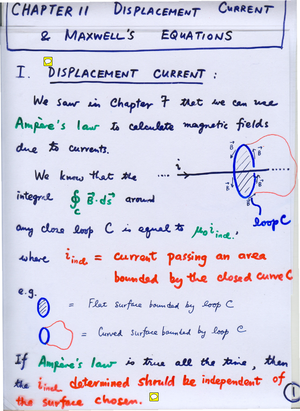 CHAPTER 11 DISPLACEMENT CURRENT
& MAXWELL'S EQUATIONS
I. DISPLACEMENT CURRENT :
We saw in Chapter 7 that we can use
Ampère's law to calculate magnetic fields
due to currents.
We know that the
integral ∮_C B⃗·ds⃗ around
any close loop C is equal to μ₀ i_incl.
i
B⃗
B⃗
B⃗
B⃗
loop C
where i_incl = current passing an area
bounded by the closed curve C
e.g.
= Flat surface bounded by loop C
= Curved surface bounded by loop C
If Ampère's law is true all the time, then
the i_incl determined should be independent of
the surface chosen.
1